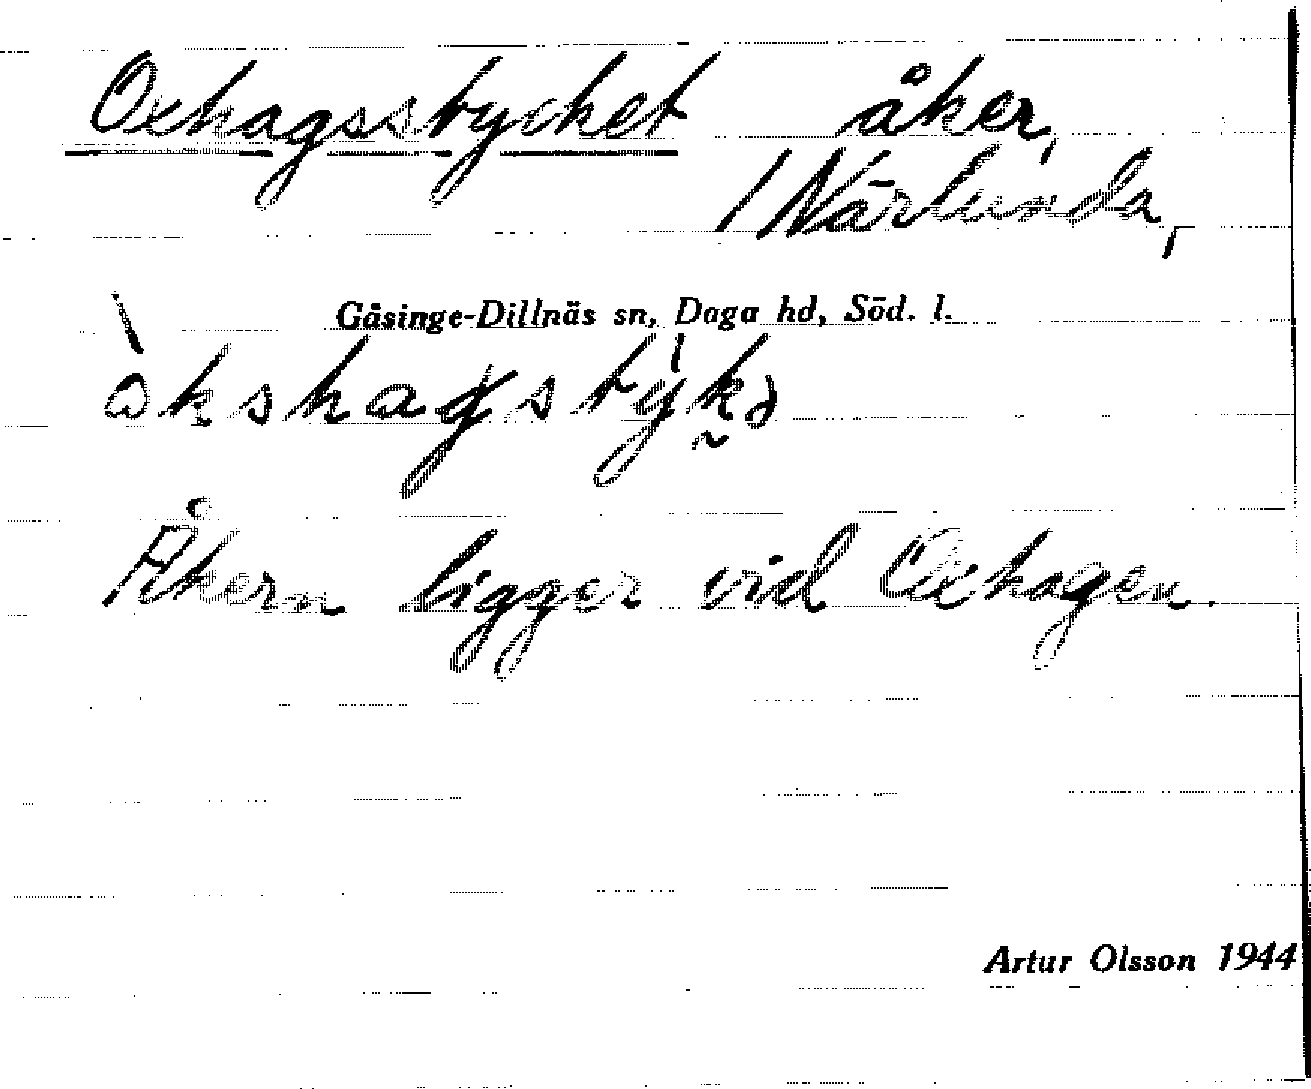 Oxhagsstycket åker,
/ Närlunda,
Gåsinge-Dillnäs sn, Daga hd, Söd. l.
Åkern ligger vid Oxhagen.
Artur Olsson 1944